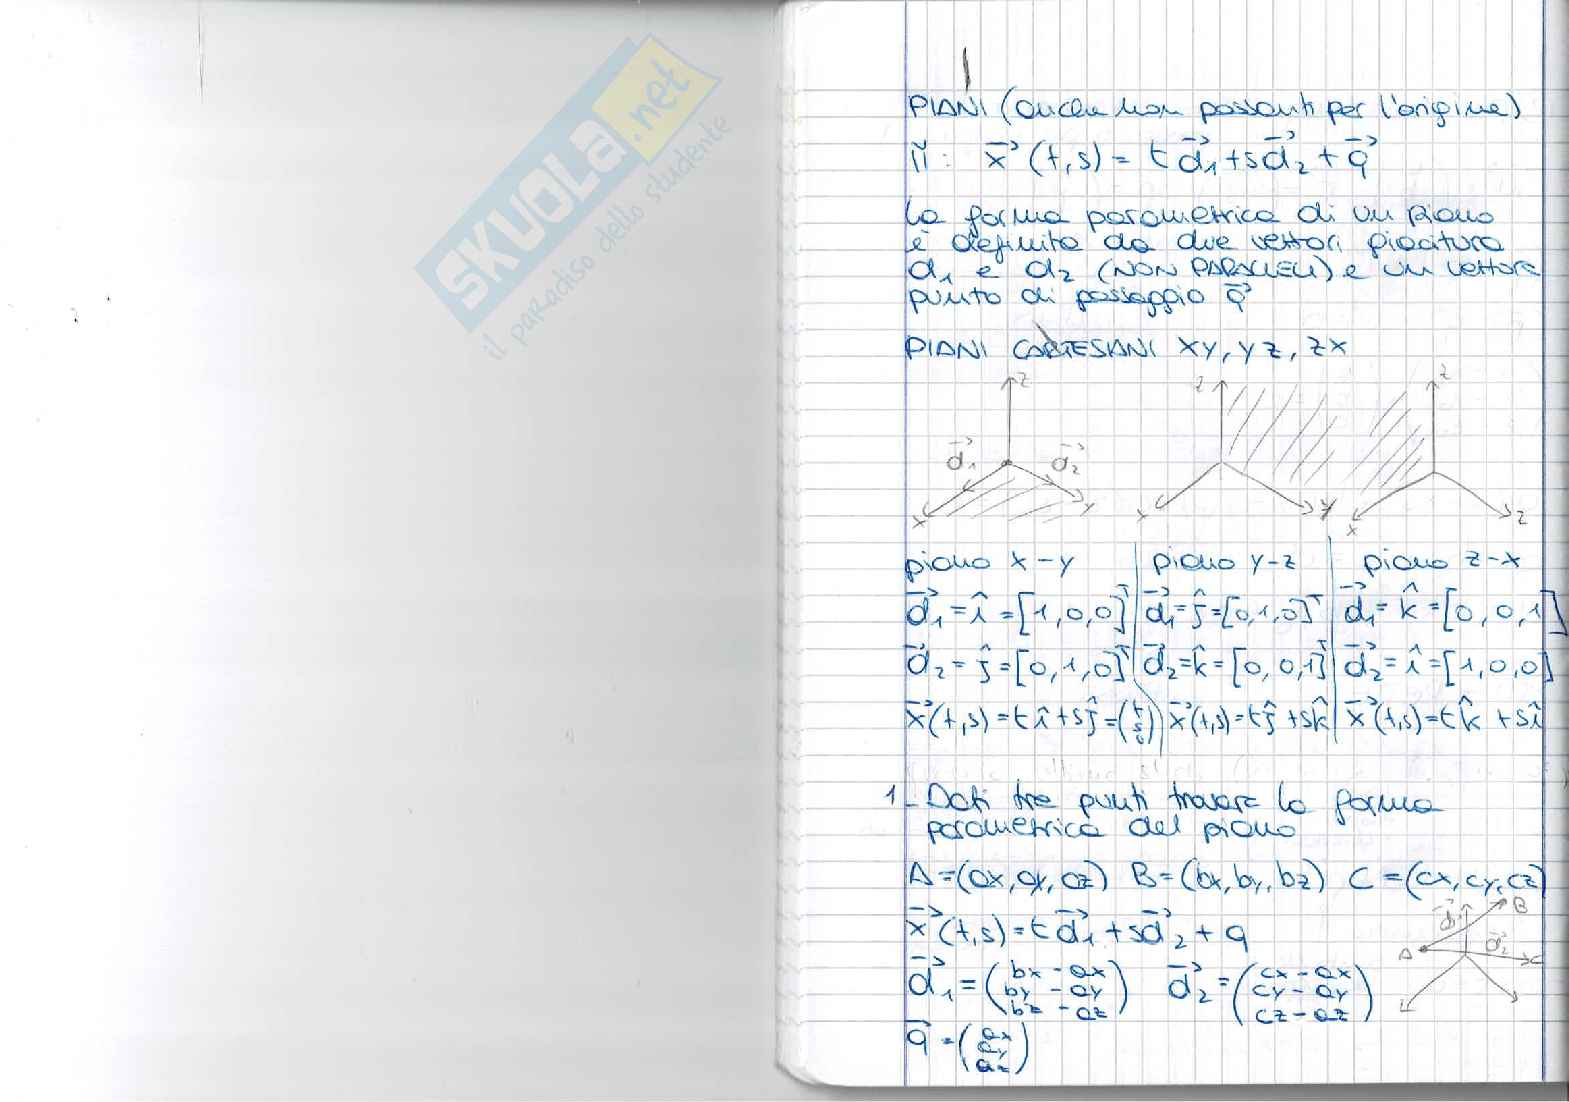 SKUOLA.net
il paradiso dello studente
PIANI (anche non passanti per l'origine)
π: x⃗(t,s) = t d⃗₁ + s d⃗₂ + q⃗
la forma parametrica di un piano
è definita da due vettori giacitura
d₁ e d₂ (NON PARALLELI) e un vettore
punto di passaggio q⃗
PIANI CARTESIANI XY, YZ, ZX
z z z
d⃗₁ d⃗₂
x y x y x z
piano x-y piano y-z piano z-x
d⃗₁ = î = [1,0,0]ᵀ d⃗₁ = ĵ = [0,1,0]ᵀ d⃗₁ = k̂ = [0,0,1]
d⃗₂ = ĵ = [0,1,0]ᵀ d⃗₂ = k̂ = [0,0,1]ᵀ d⃗₂ = î = [1,0,0]
x⃗(t,s) = t î + s ĵ = (t s 0) x⃗(t,s) = t ĵ + s k̂ x⃗(t,s) = t k̂ + s î
1 - Dati tre punti trovare la forma
parametrica del piano
A = (ax, ay, az) B = (bx, by, bz) C = (cx, cy, cz)
x⃗(t,s) = t d⃗₁ + s d⃗₂ + q
d⃗₁ B
A d⃗₂ C
d⃗₁ = (bx - ax by - ay bz - az) d⃗₂ = (cx - ax cy - ay cz - az)
q⃗ = (ax ay az)